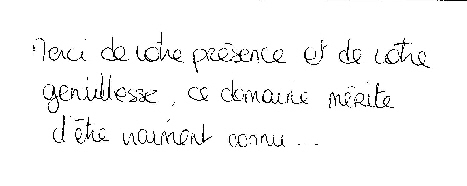 Merci de votre présence et de votre
gentillesse, ce domaine mérite
d'être vraiment connu...